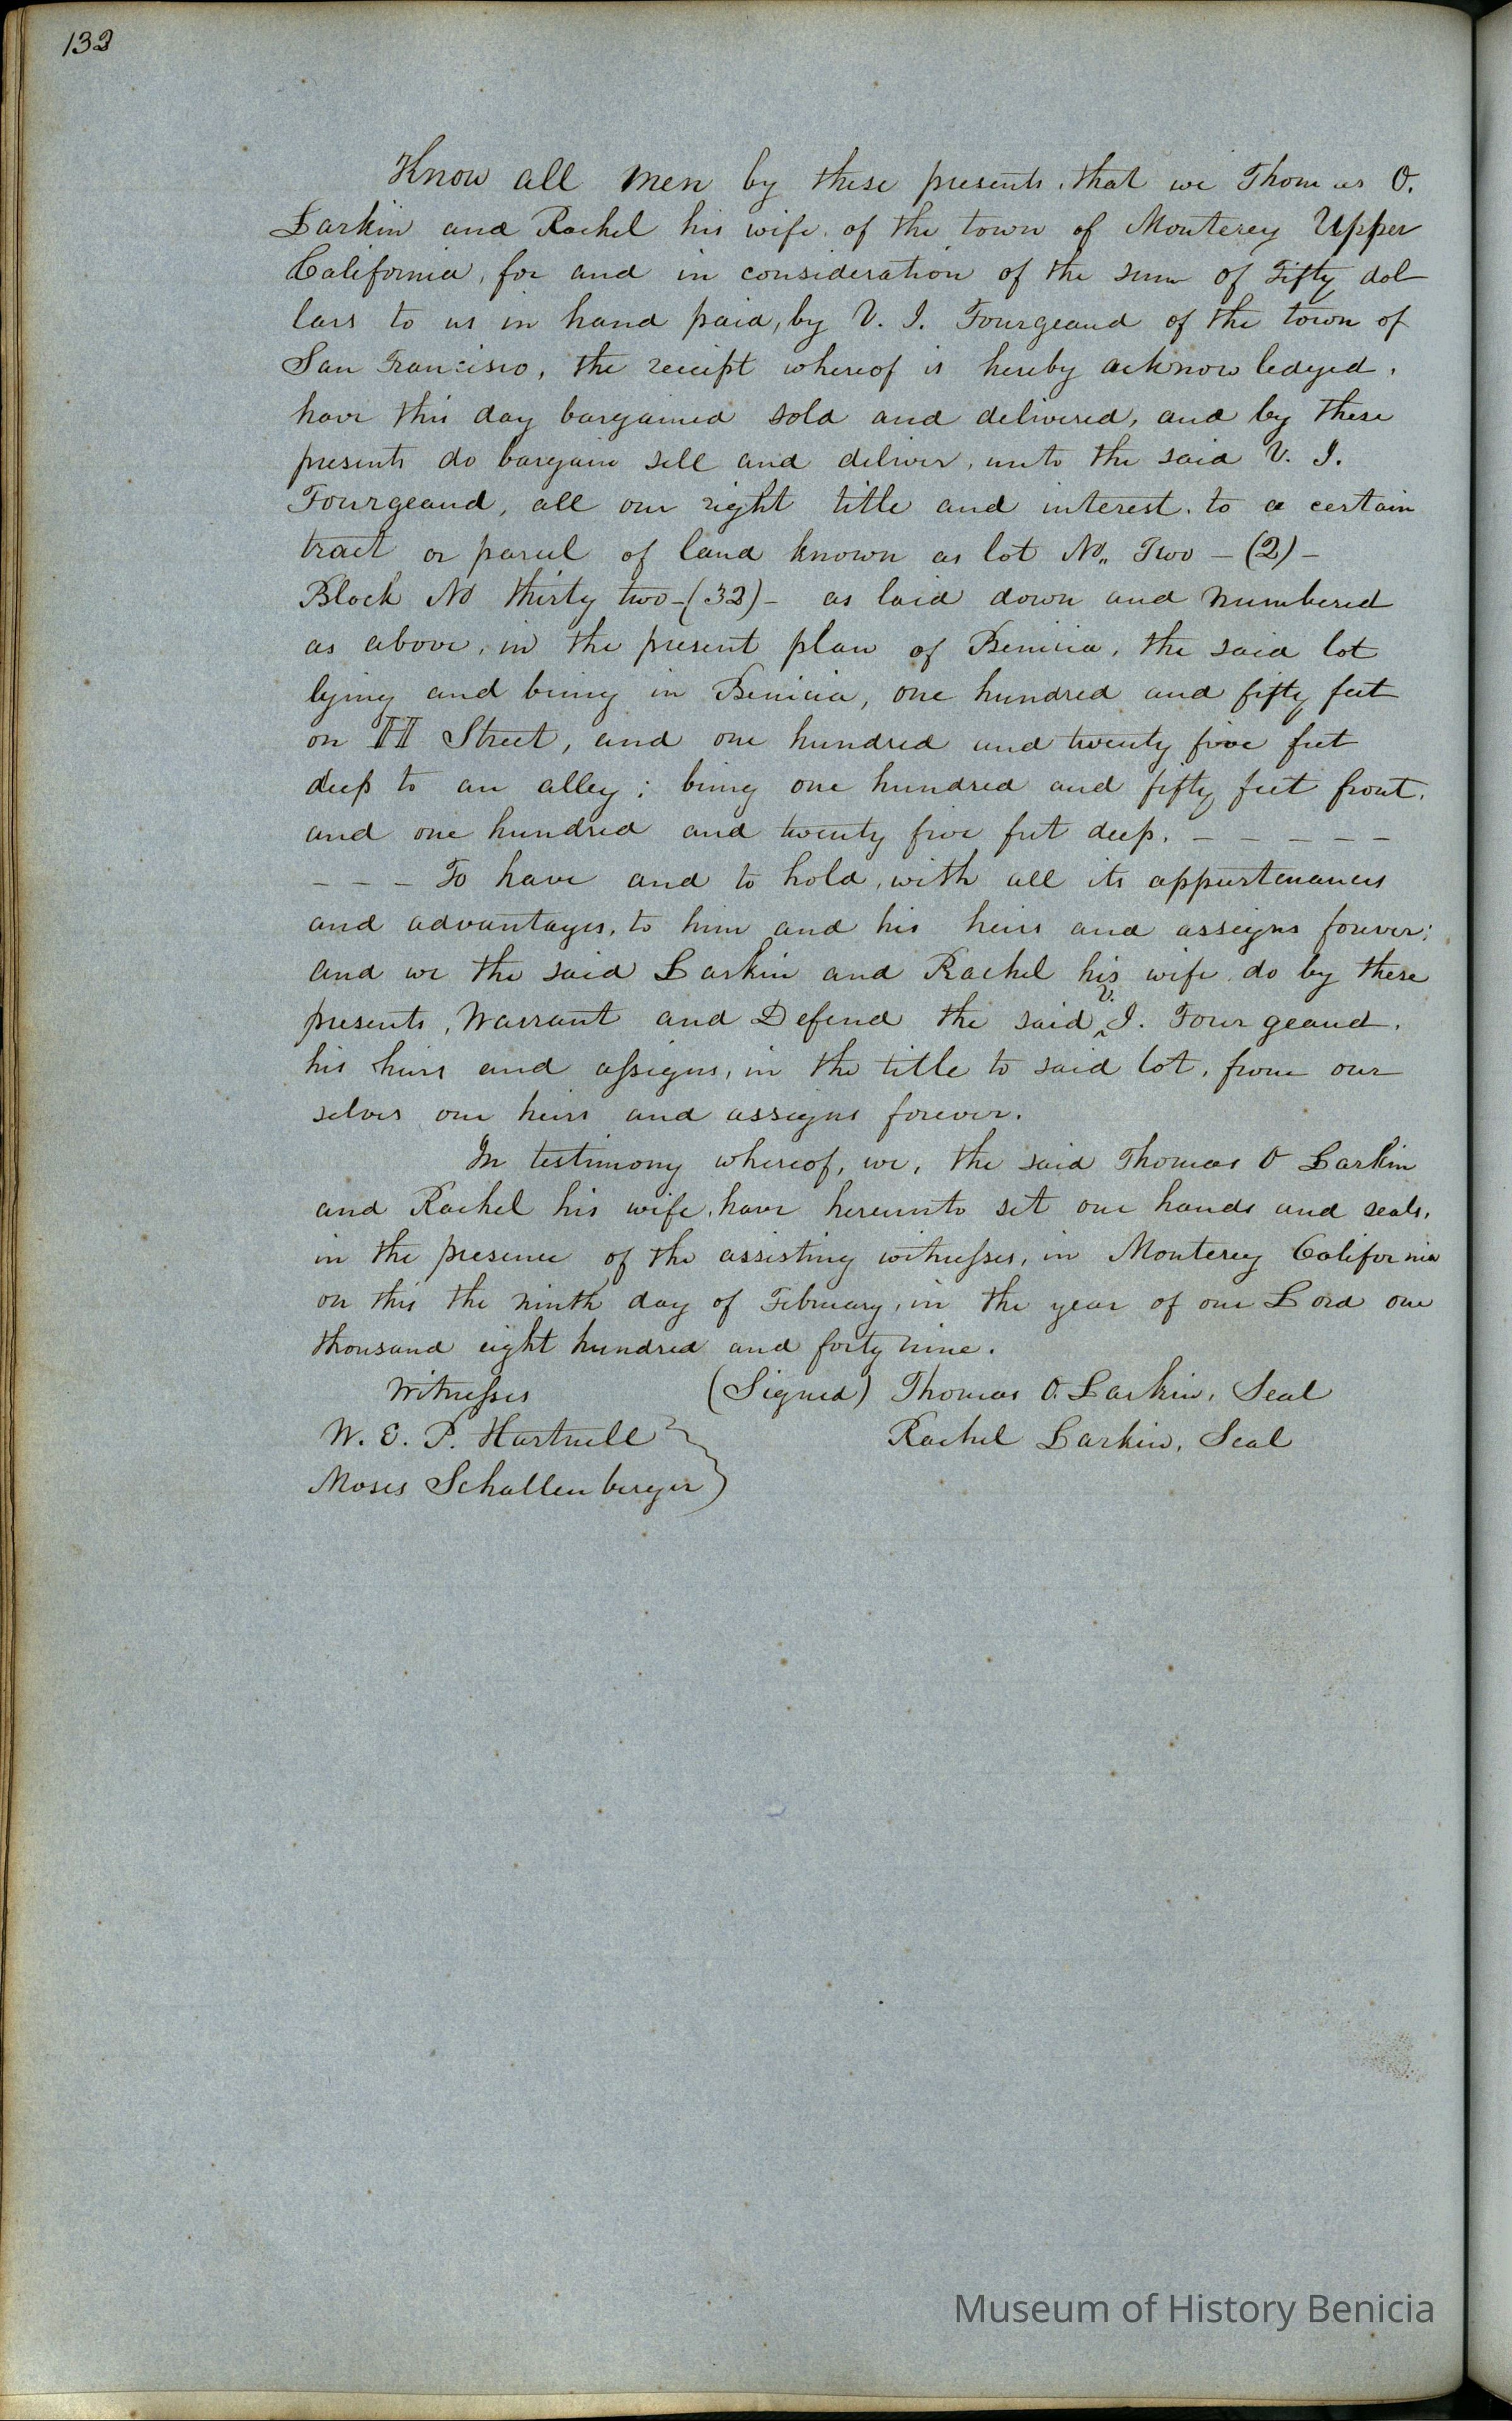 132
Know all men by these presents, that we Thomas O.
Larkin and Rachel his wife, of the town of Monterey Upper
California, for and in consideration of the sum of Fifty dol
lars to us in hand paid, by V. J. Fourgeaud of the town of
San Francisco, the receipt whereof is hereby acknowledged,
have this day bargained sold and delivered, and by these
presents do bargain sell and deliver, unto the said V. J.
Fourgeaud, all our right title and interest, to a certain
tract or parcel of land known as lot No,, Two – (2) –
Block No thirty two – (32) – as laid down and numbered
as above, in the present plan of Benicia, the said lot
lying and being in Benicia, one hundred and fifty feet
on H Street, and one hundred and twenty five feet
deep to an alley; being one hundred and fifty feet front,
and one hundred and twenty five feet deep. – – – – –
– – – To have and to hold, with all its appurtenances
and advantages, to him and his heirs and assigns forever;
and we the said Larkin and Rachel his wife, do by these
presents, Warrant and Defend the said V. J. Fourgeaud,
his heirs and assigns, in the title to said lot, from our
selves our heirs and assigns forever.
In testimony whereof, we, the said Thomas O Larkin
and Rachel his wife, have hereunto set our hands and seals,
in the presence of the assisting witnesses, in Monterey California
on this the ninth day of February, in the year of our Lord one
thousand eight hundred and forty nine.
Witnesses (Signed) Thomas O. Larkin, Seal
W. E. P. Hartnell Rachel Larkin, Seal
Moses Schallenberger
Museum of History Benicia